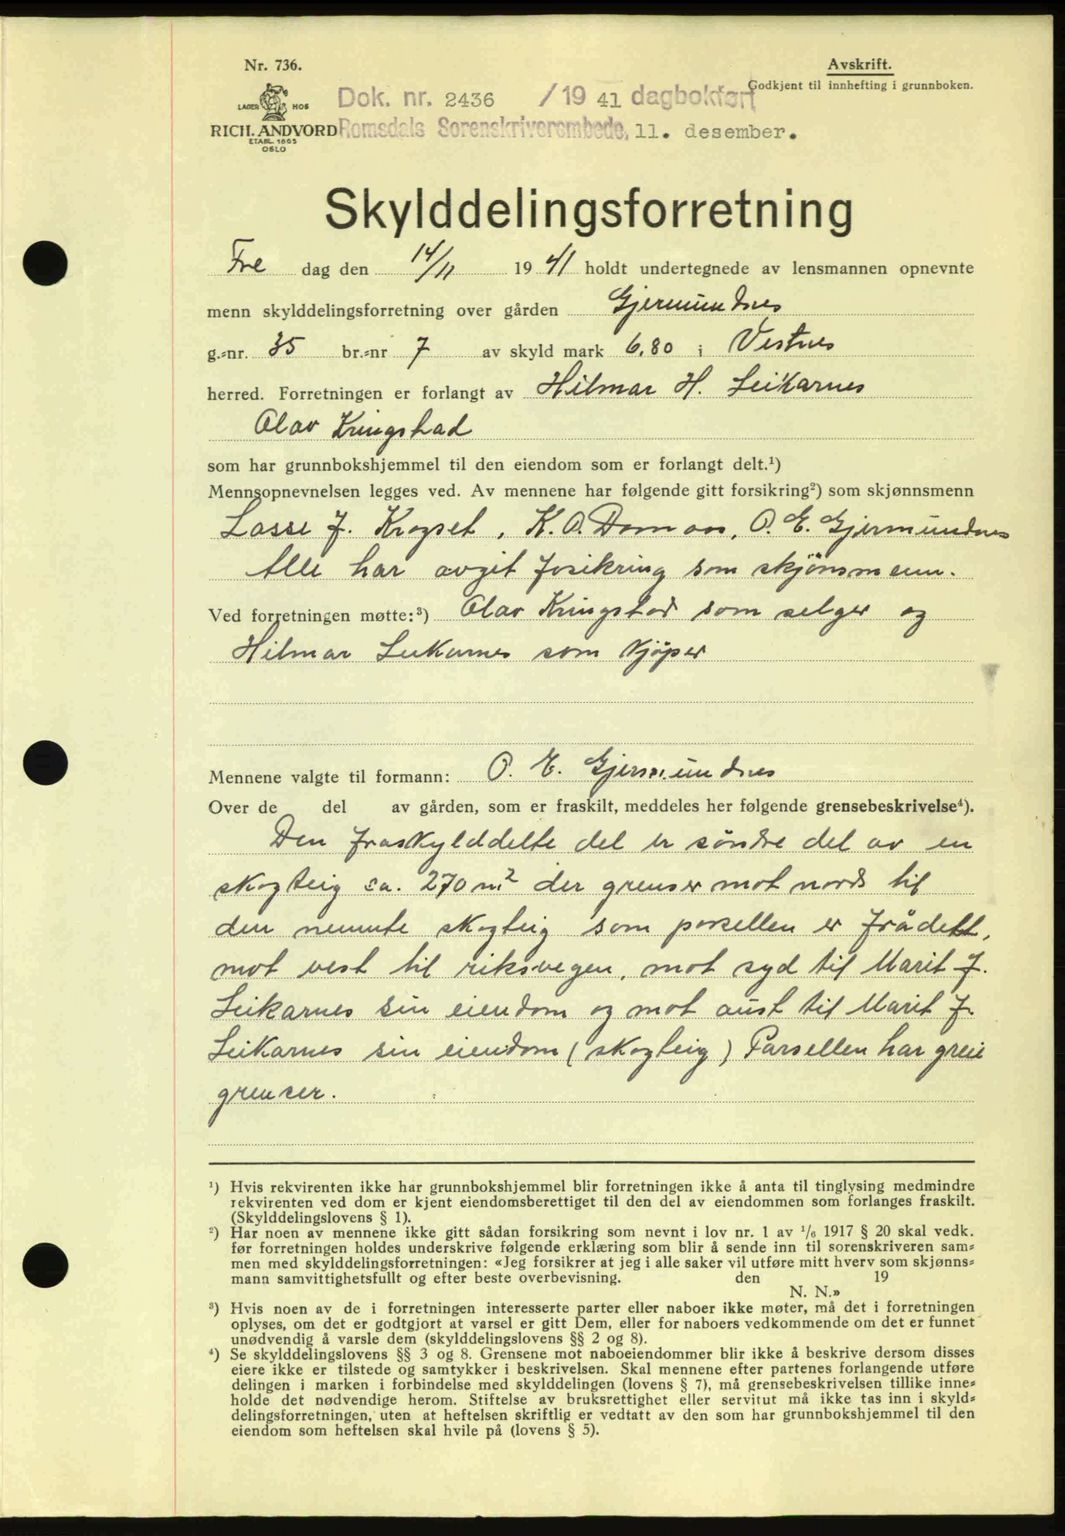 Nr. 736.
LAGER HOS
RICH. ANDVORD
ETABL. 1865
OSLO
Avskrift.
Godkjent til innhefting i grunnboken.
Dok. nr. 2436 /19 41 dagbokført
Romsdals Sorenskriverembede, 11. desember.
Skylddelingsforretning
Fre dag den 14/11 1941 holdt undertegnede av lensmannen opnevnte
menn skylddelingsforretning over gården Gjermundnes
g.-nr. 35 br.-nr 7 av skyld mark 6,80 i Vestnes
herred. Forretningen er forlangt av Hilmar H. Leikarnes
Olav Kringstad
som har grunnbokshjemmel til den eiendom som er forlangt delt.¹)
Mennsopnevnelsen legges ved. Av mennene har følgende gitt forsikring²) som skjønnsmenn
Lasse J. Krogset, K.O. Domaas, O. E. Gjermundnes
Alle har avgit fosikring som skjönsmenn.
Ved forretningen møtte:³) Olav Kringstad som selger og
Hilmar Leikarnes som kjöper
Mennene valgte til formann: O. E. Gjermundnes
Over de del av gården, som er fraskilt, meddeles her følgende grensebeskrivelse⁴).
Den fraskylddelte del er söndre del av en
skogteig ca. 270 m² der grenser mot nord til
den nemnte skogteig som parsellen er frådelt,
mot vest til riksvegen, mot syd til Marit J.
Leikarnes sin eiendom og mot aust til Marit J.
Leikarnes sin eiendom (skogteig) Parsellen har greie
grenser.
¹) Hvis rekvirenten ikke har grunnbokshjemmel blir forretningen ikke å anta til tinglysing medmindre
rekvirenten ved dom er kjent eiendomsberettiget til den del av eiendommen som forlanges fraskilt.
(Skylddelingslovens § 1).
²) Har noen av mennene ikke gitt sådan forsikring som nevnt i lov nr. 1 av ¹/₆ 1917 § 20 skal vedk.
før forretningen holdes underskrive følgende erklæring som blir å sende inn til sorenskriveren sam-
men med skylddelingsforretningen: «Jeg forsikrer at jeg i alle saker vil utføre mitt hverv som skjønns-
mann samvittighetsfullt og efter beste overbevisning. den 19
N. N.»
³) Hvis noen av de i forretningen interesserte parter eller naboer ikke møter, må det i forretningen
oplyses, om det er godtgjort at varsel er gitt Dem, eller for naboers vedkommende om det er funnet
unødvendig å varsle dem (skylddelingslovens §§ 2 og 8).
⁴) Se skylddelingslovens §§ 3 og 8. Grensene mot naboeiendommer blir ikke å beskrive dersom disses
eiere ikke er tilstede og samtykker i beskrivelsen. Skal mennene efter partenes forlangende utføre
delingen i marken i forbindelse med skylddelingen (lovens § 7), må grensebeskrivelsen tillike inne-
holde det nødvendige herom. Stiftelse av bruksrettighet eller servitut må ikke tas inn i skyld-
delingsforretningen, uten at heftelsen skriftlig er vedtatt av den som har grunnbokshjemmel til den
eiendom som heftelsen skal hvile på (lovens § 5).